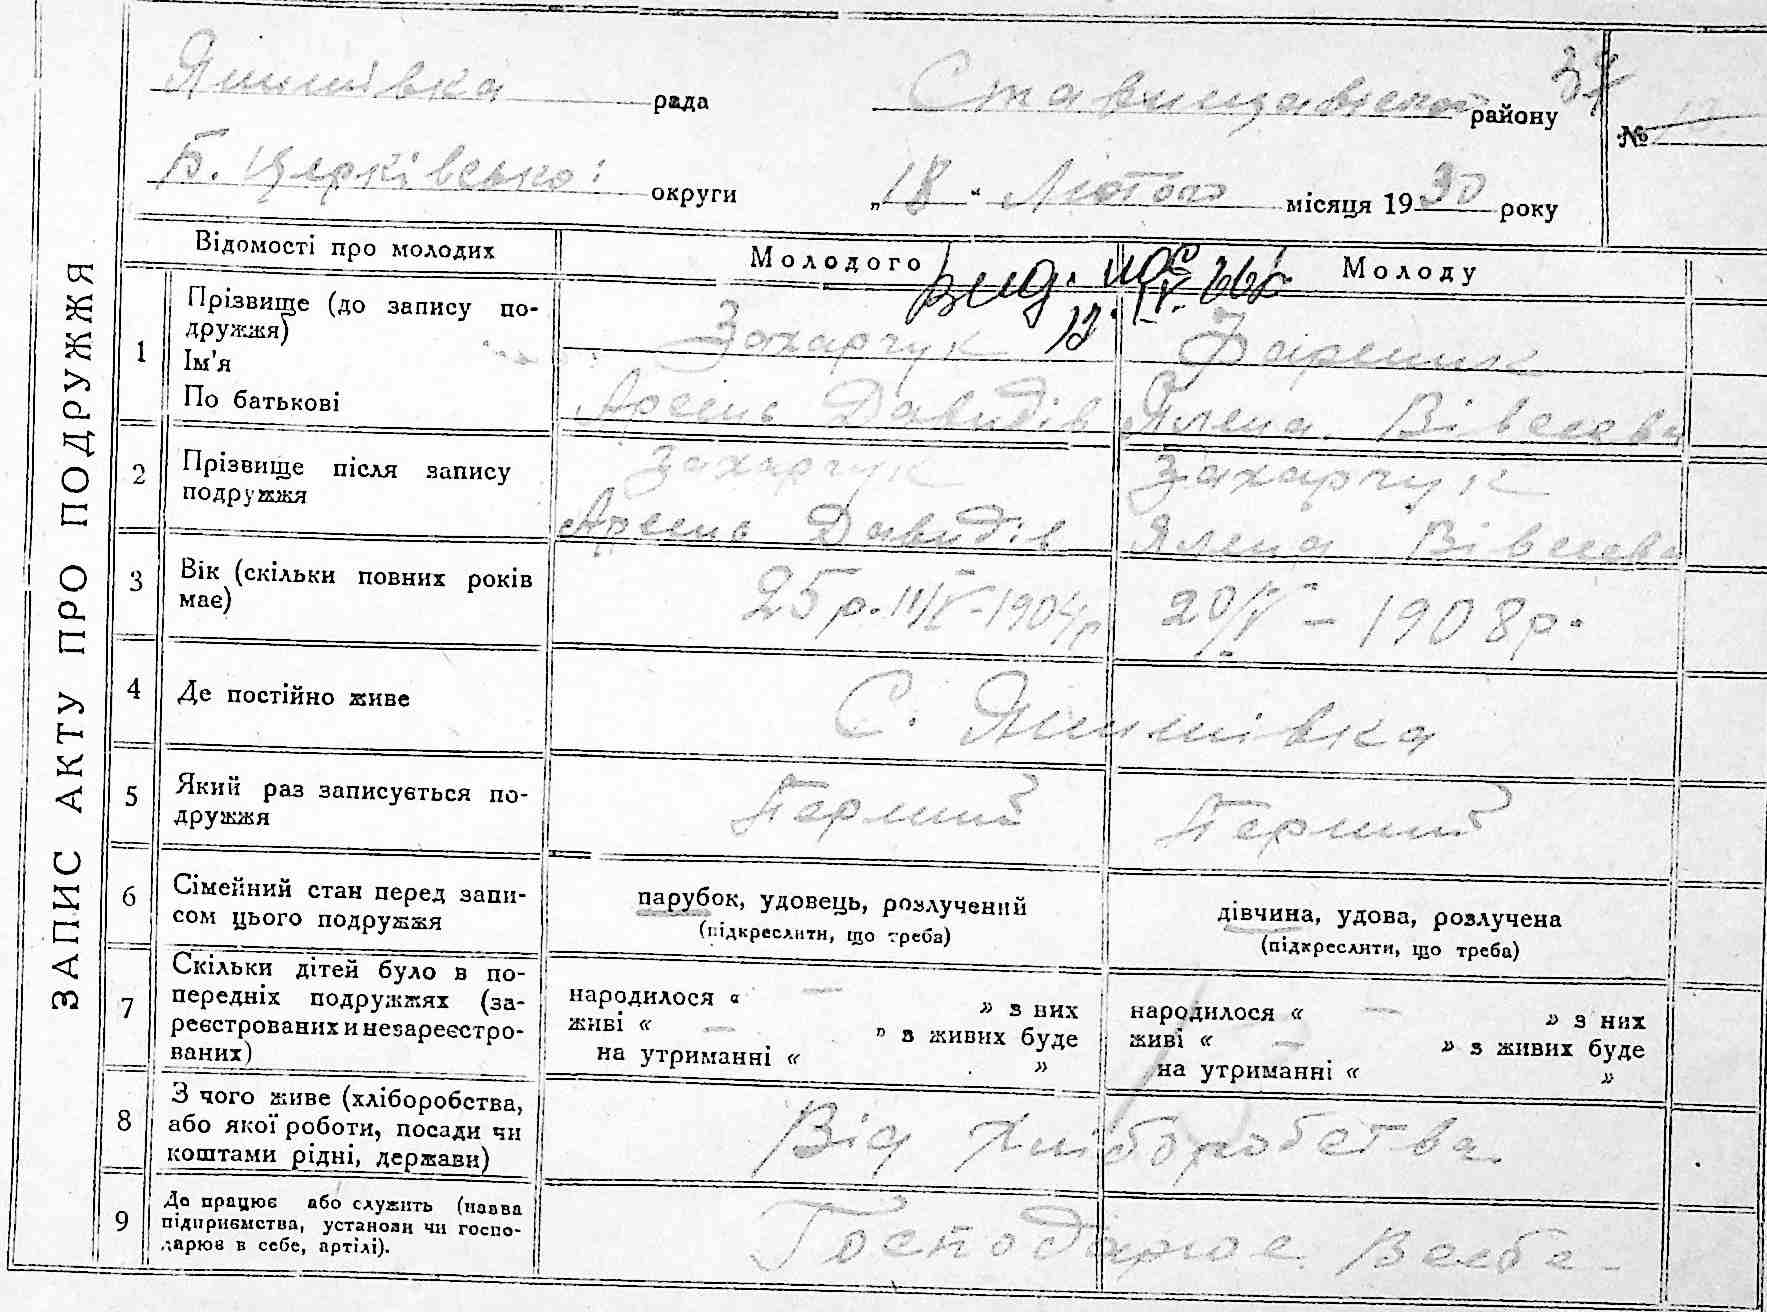 ЗАПИС АКТУ ПРО ПОДРУЖЖЯ
Янишівка рада Ставищанської району 37
№
Б. Церківської округи „18“ Лютого місяця 1930 року
Відомості про молодих Молодого Молоду
вид.
1 Прізвище (до запису по-
дружжя)
Ім'я
По батькові
Захарчук
Арсень Давидів
Ялена Вівсеєва
2 Прізвище після запису
подружжя
Захарчук Захарчук
Арсень Давидів Ялена Вівсеєва
3 Вік (скільки повних років
має)
25 р. 1904 р 20/IV – 1908 р.
4 Де постійно живе С. Янишівка
5 Який раз записується по-
дружжя
Перший Перший
6 Сімейний стан перед запи-
сом цього подружжя
парубок, удовець, розлучений
(підкреслити, що треба)
дівчина, удова, розлучена
(підкреслити, що треба)
7 Скільки дітей було в по-
передніх подружжях (за-
реєстрованих и незареєстро-
ваних)
народилося « — » з них
живі « — » з живих буде
на утриманні « »
народилося « — » з них
живі « — » з живих буде
на утриманні « »
8 З чого живе (хліборобства,
або якої роботи, посади чи
коштами рідні, держави)
Від хліборобства
9 Де працює або служить (назва
підприємства, установи чи госпо-
дарює в себе, артілі).
Господарює в себе